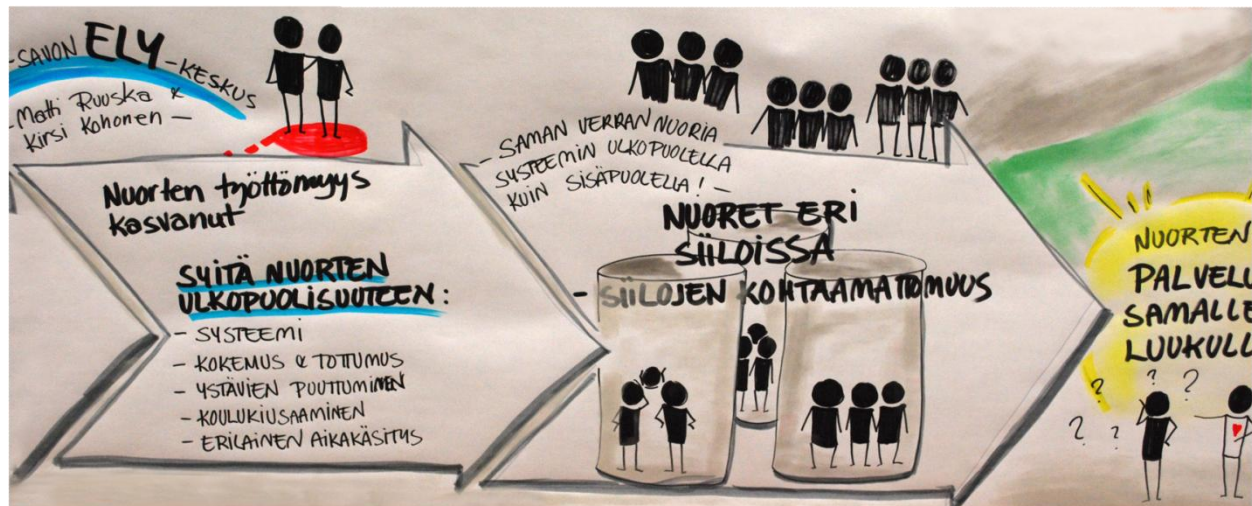 -SAVON ELY-KESKUS
-Matti Ruuska &
Kirsi Kohonen-
Nuorten työttömyys
kasvanut
SYITÄ NUORTEN
ULKOPUOLISUUTEEN:
- SYSTEEMI
- KOKEMUS & TOTTUMUS
- YSTÄVIEN PUUTTUMINEN
- KOULUKIUSAAMINEN
- ERILAINEN AIKAKÄSITYS
- SAMAN VERRAN NUORIA
SYSTEEMIN ULKOPUOLELLA
KUIN SISÄPUOLELLA! -
NUORET ERI
SIILOISSA
- SIILOJEN KOHTAAMATTOMUUS
NUORTEN
PALVELU
SAMALLE
LUUKULL
? ? ?
? ?